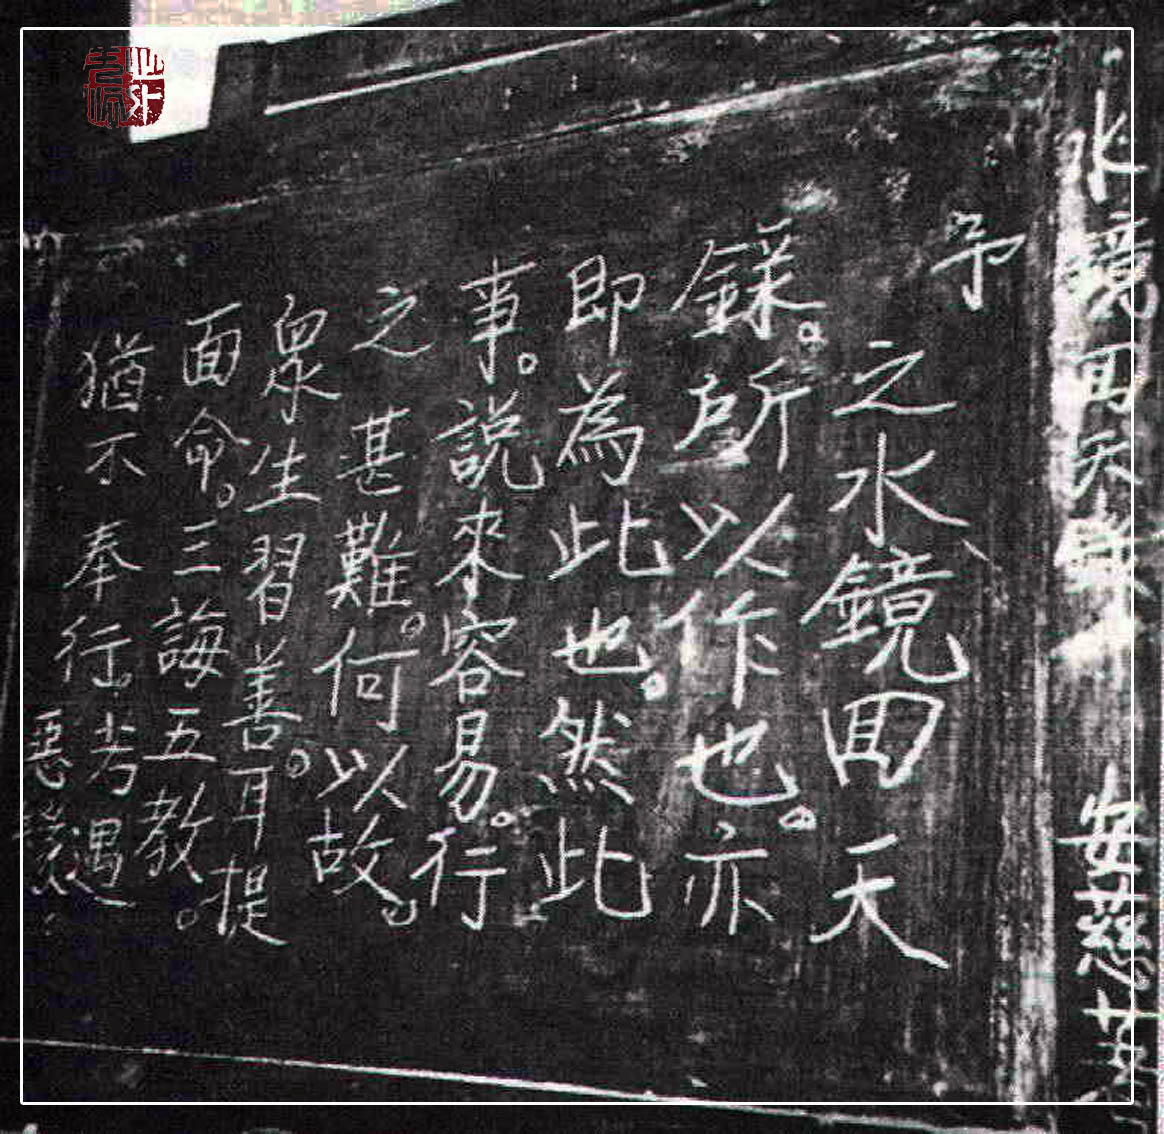 水鏡回天錄 安慈
予
之水鏡回天
錄。所以作也。亦
即為此也。然此
事。說來容易。行
之甚難。何以故。
眾生習善。耳提
面命。三誨五教。
猶不奉行。若遇一
惡